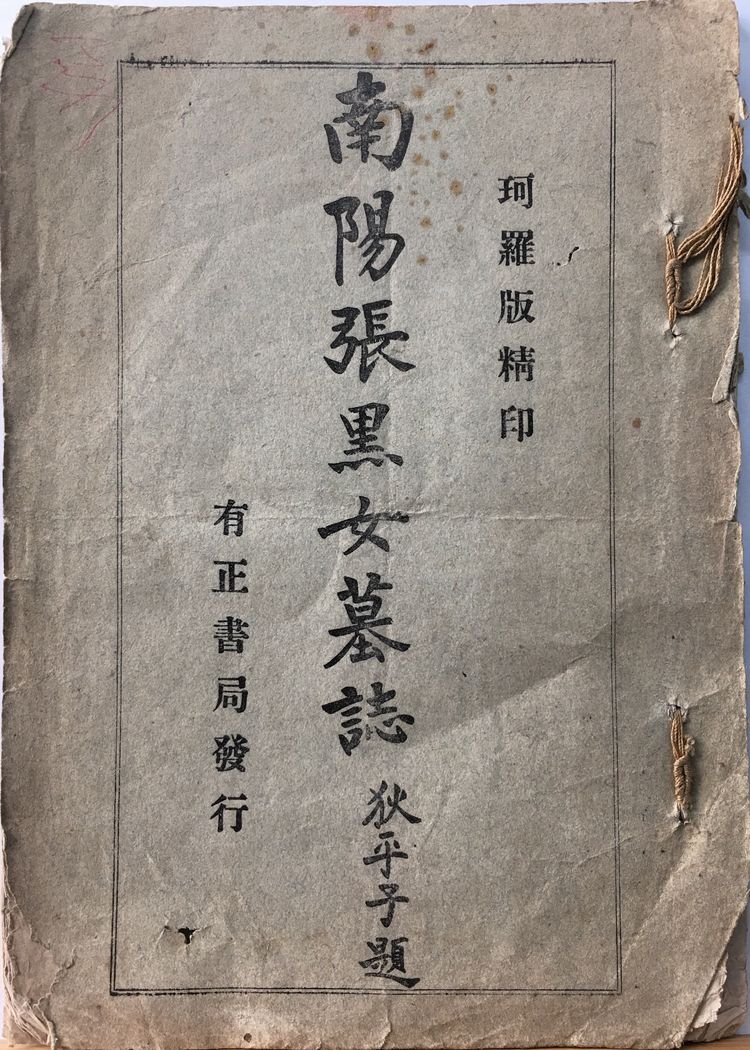 珂羅版精印
南陽張黑女墓誌
狄平子題
有正書局發行